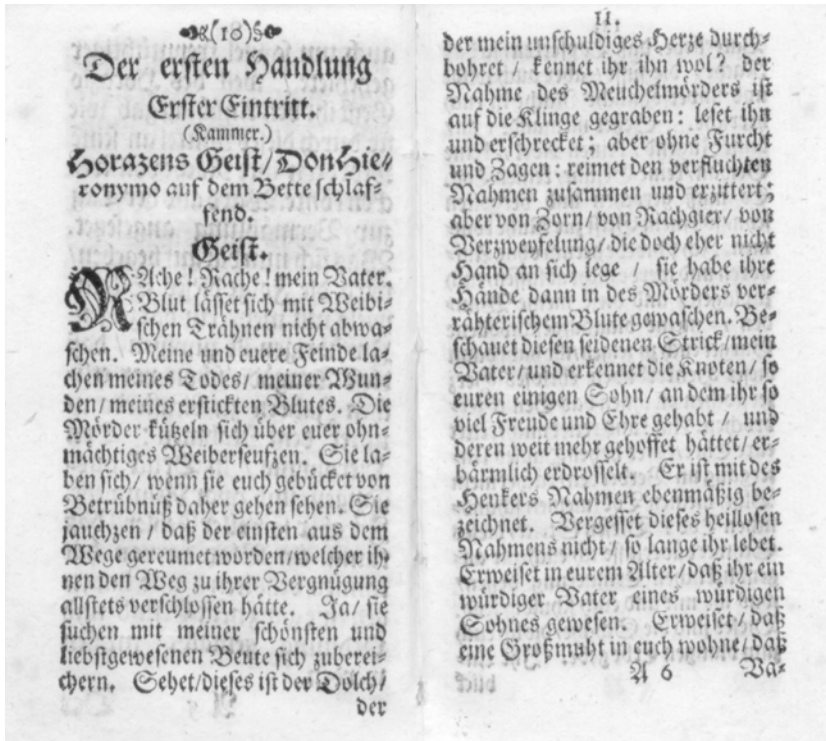 (10)
Der ersten Handlung
Erster Eintritt.
(Kammer.)
Horazens Geist/Don Hie-
ronymo auf dem Bette schlaf-
fend.
Geist.
RAche! Rache! mein Vater.
Blut lässet sich mit Weibi-
schen Trähnen nicht abwa-
schen. Meine und euere Feinde la-
chen meines Todes/ meiner Wun-
den/ meines erstickten Blutes. Die
Mörder kützeln sich über euer ohn-
mächtiges Weiberseufzen. Sie la-
ben sich/ wenn sie euch gebücket von
Betrübnüß daher gehen sehen. Sie
jauchzen / daß der einsten aus dem
Wege gereumet worden/welcher ih-
nen den Weg zu ihrer Vergnügung
allstets verschlossen hätte. Ja/ sie
suchen mit meiner schönsten und
liebstgewesenen Beute sich zuberei-
chern. Sehet/dieses ist der Dolch/
der
11.
der mein unschuldiges Herze durch-
bohret / kennet ihr ihn wol? der
Nahme des Meuchelmörders ist
auf die Klinge gegraben: leset ihn
und erschrecket; aber ohne Furcht
und Zagen: reimet den verfluchten
Nahmen zusammen und erzittert;
aber von Zorn/ von Rachgier/ von
Verzweyfelung/ die doch eher nicht
Hand an sich lege / sie habe ihre
Hände dann in des Mörders ver-
rähterischem Blute gewaschen. Be-
schauet diesen seidenen Strick/mein
Vater/ und erkennet die Knoten/ so
euren einigen Sohn/ an dem ihr so
viel Freude und Ehre gehabt / und
deren weit mehr gehoffet hättet/ er-
bärmlich erdrosselt. Er ist mit des
Henkers Nahmen ebenmäßig be-
zeichnet. Vergesset dieses heillosen
Nahmens nicht / so lange ihr lebet.
Erweiset in eurem Alter/daß ihr ein
würdiger Vater eines würdigen
Sohnes gewesen. Erweiset/ daß
eine Großmuht in euch wohne/ daß
A 6 Va-